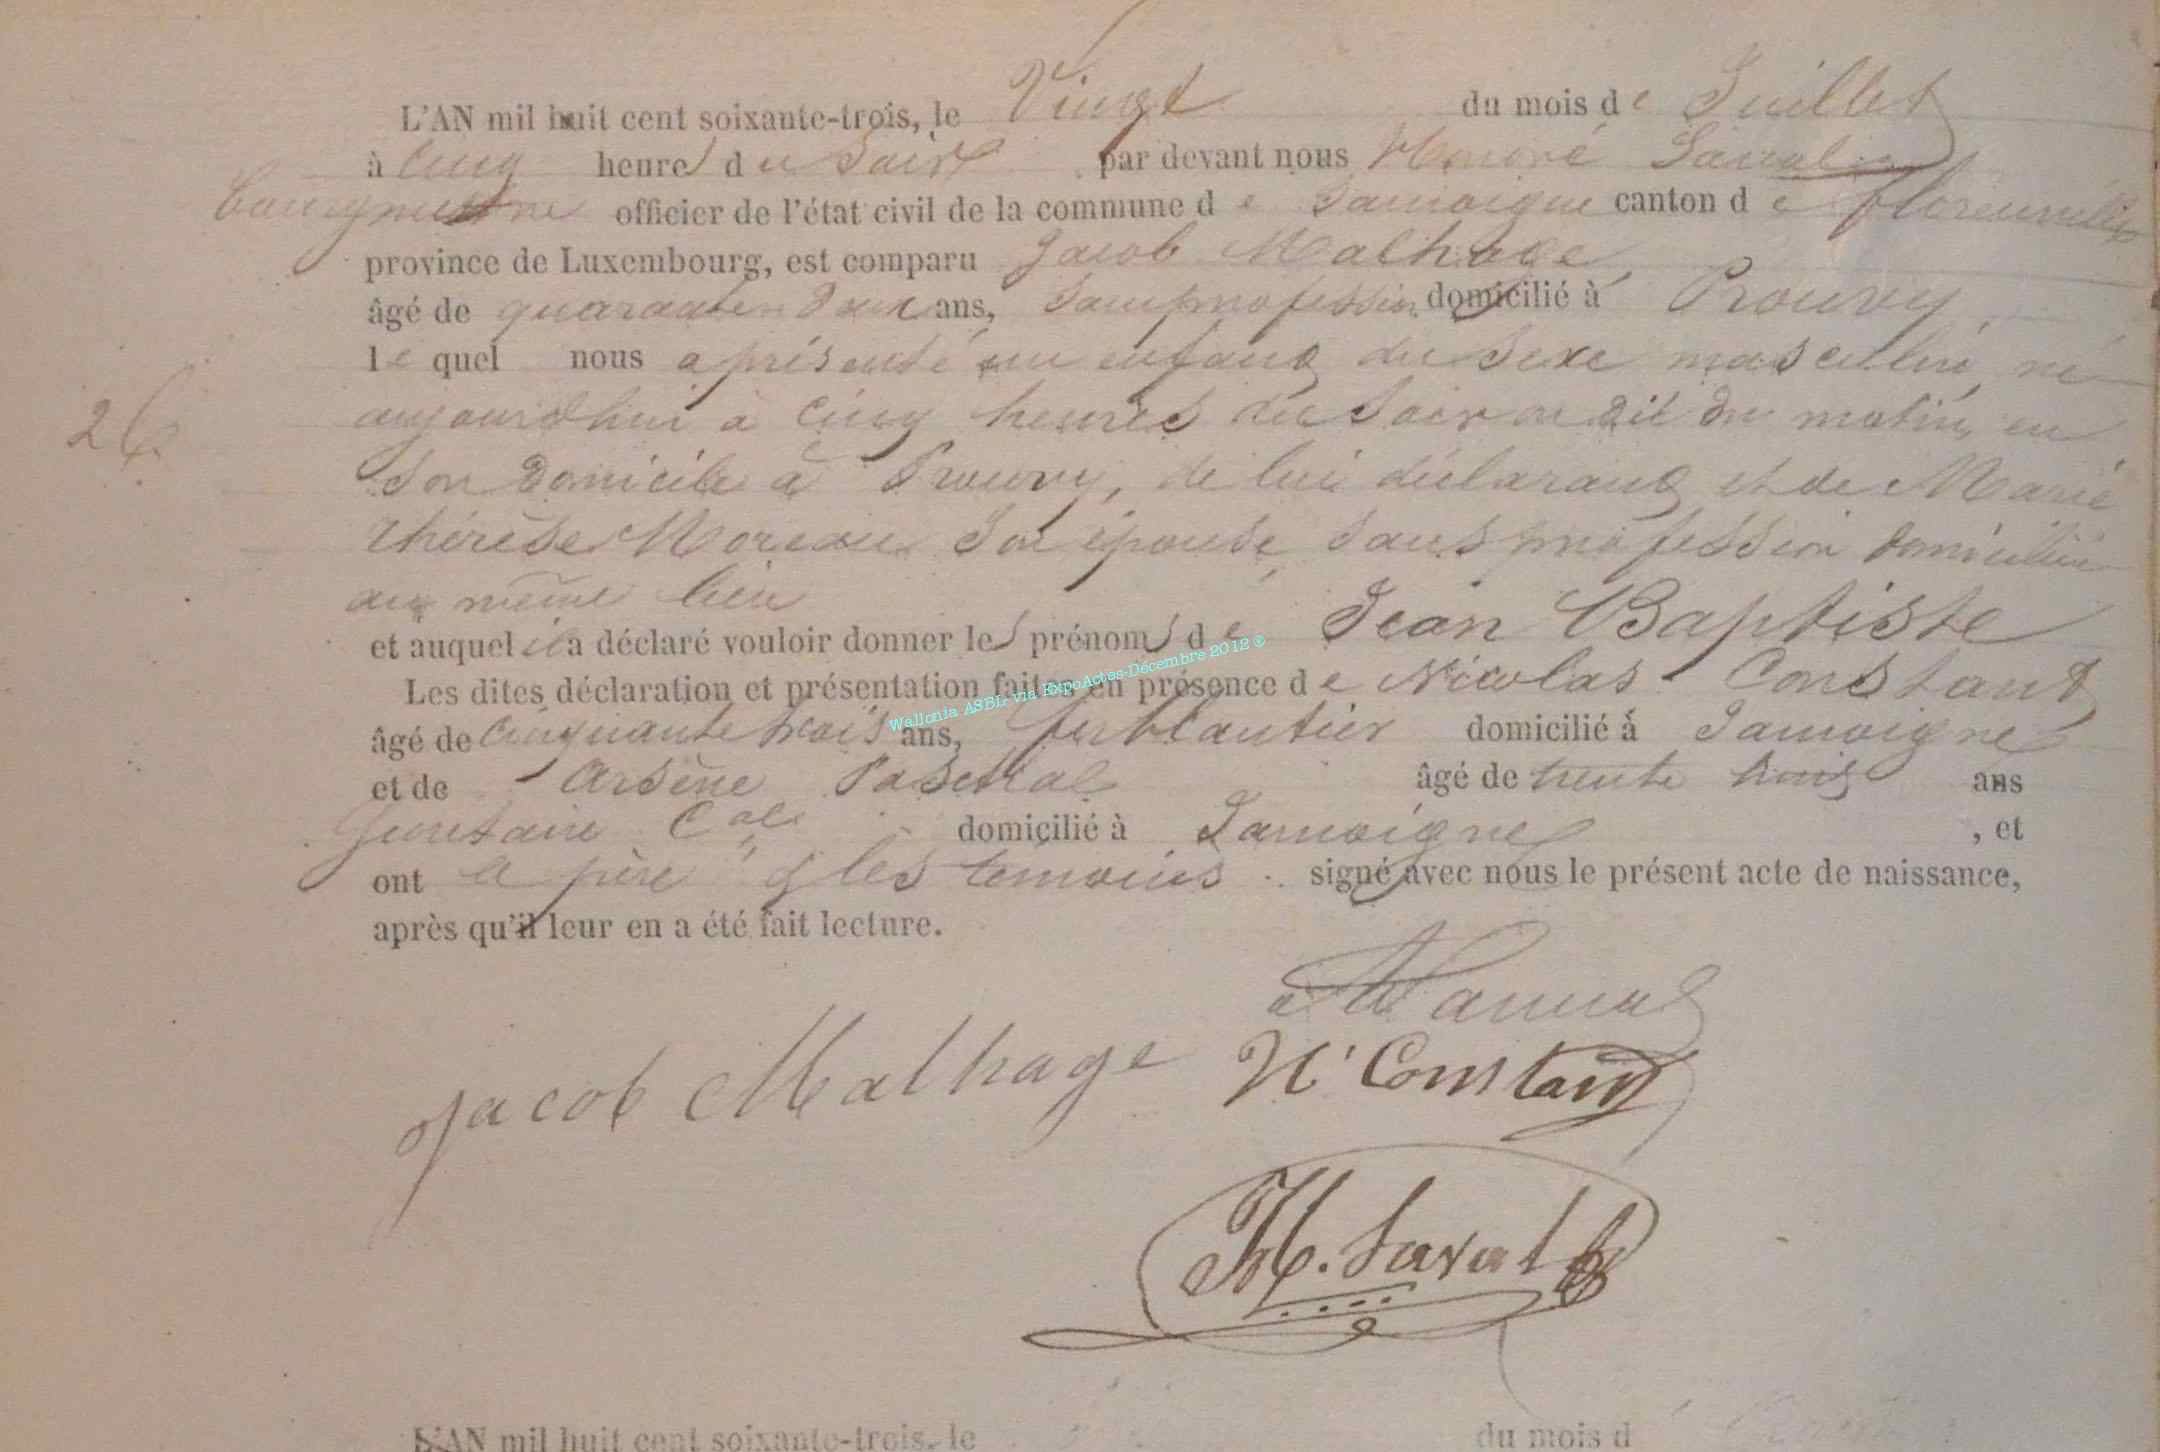 L'AN mil huit cent soixante-trois, le Vingt du mois de Juillet
à Cinq heures du Soir par devant nous Honoré
Bourgmestre officier de l'état civil de la commune de Jamoigne canton de florenville
province de Luxembourg, est comparu Jacob Malhage,
âgé de ans, Sans profession domicilié à Prouvy
lequel nous a présenté un enfant du Sexe masculin, né
aujourd'hui à Cinq heures du matin, en
Son Domicile à Prouvy, de lui déclarant et de Marie
thérèse Moreau Son épouse, Sans profession domiciliée
au même lieu
et auquel il a déclaré vouloir donner les prénoms de Jean Baptiste
Les dites déclaration et présentation faites en présence de Nicolas Constant
âgé de Cinquante trois ans, ferblantier domicilié à Jamoigne
et de Arsène Pascal âgé de trente trois ans
domicilié à Jamoigne , et
ont le père & les témoins signé avec nous le présent acte de naissance,
après qu'il leur en a été fait lecture.
26
Wallonia ASBL via ExpoActes-Décembre 2012 ®
Jacob Malhage
N Constant
H.
L'AN mil huit cent soixante-trois, le du mois d